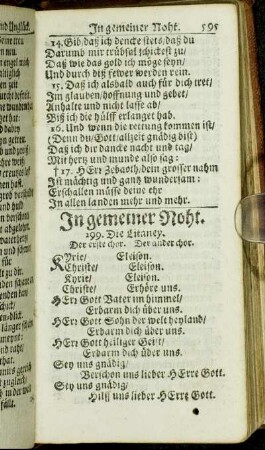 In gemeiner Noht. 595
14. Gib/daß ich dencke stets/daß du
Darumb mir trübsal schickest zu/
Daß wie das gold ich möge seyn/
Und durch diß fewer werden rein.
15. Daß ich alsbald auch für dich tret/
Im glauben/hoffnung und gebet/
Anhalte und nicht lasse ab/
Biß ich die hülff erlanget hab.
16. Und wenn die rettung kommen ist/
(Denn du/Gott/allzeit gnädig bist)
Daß ich dir dancke nacht und tag/
Mit hertz und munde also sag:
† 17. HErr Zebaoth/dein grosser nahm
Ist mächtig und gantz wundersam:
Erschallen müsse deine ehr
In allen landen mehr und mehr.
In gemeiner Noht.
199. Die Litaney.
Der erste chor. Der ander chor.
KYrie/ Eleison.
Christe/ Eleison.
Kyrie/ Eleison.
Christe/ Erhöre uns.
HErr Gott Vater im himmel/
Erbarm dich über uns.
HErr Gott Sohn der welt heyland/
Erbarm dich über uns.
HErr Gott heiliger Geist/
Erbarm dich über uns.
Sey uns gnädig/
Verschon uns lieber HErre Gott.
Sey uns gnädig/
Hilff uns lieber HErre Gott.